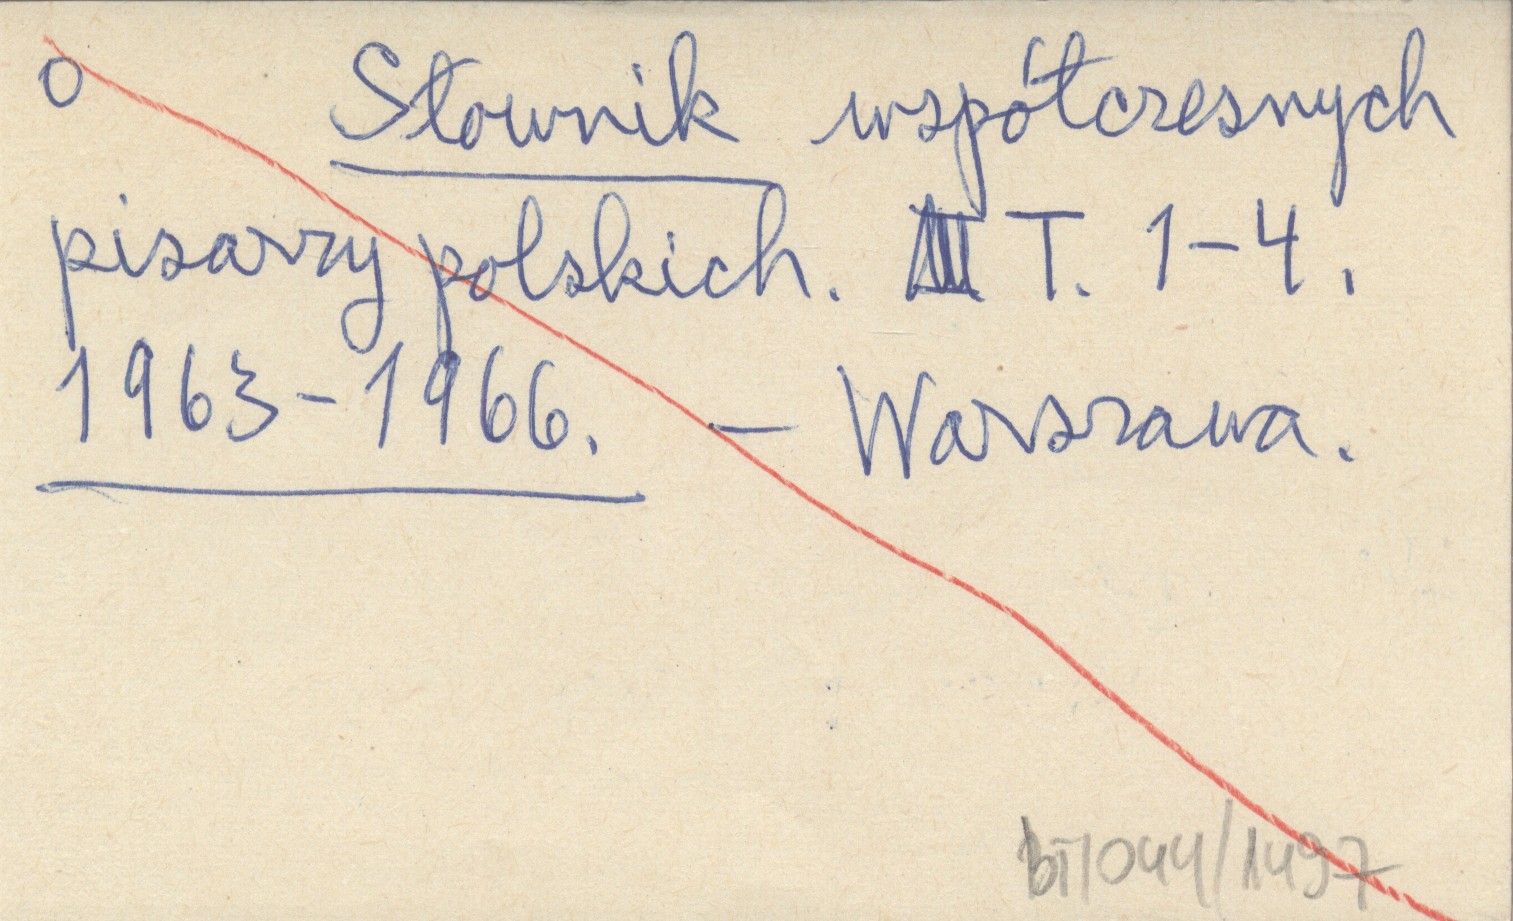 o Słownik współczesnych
pisarzy polskich. T. 1-4.
1963-1966. - Warszawa.
044/1497